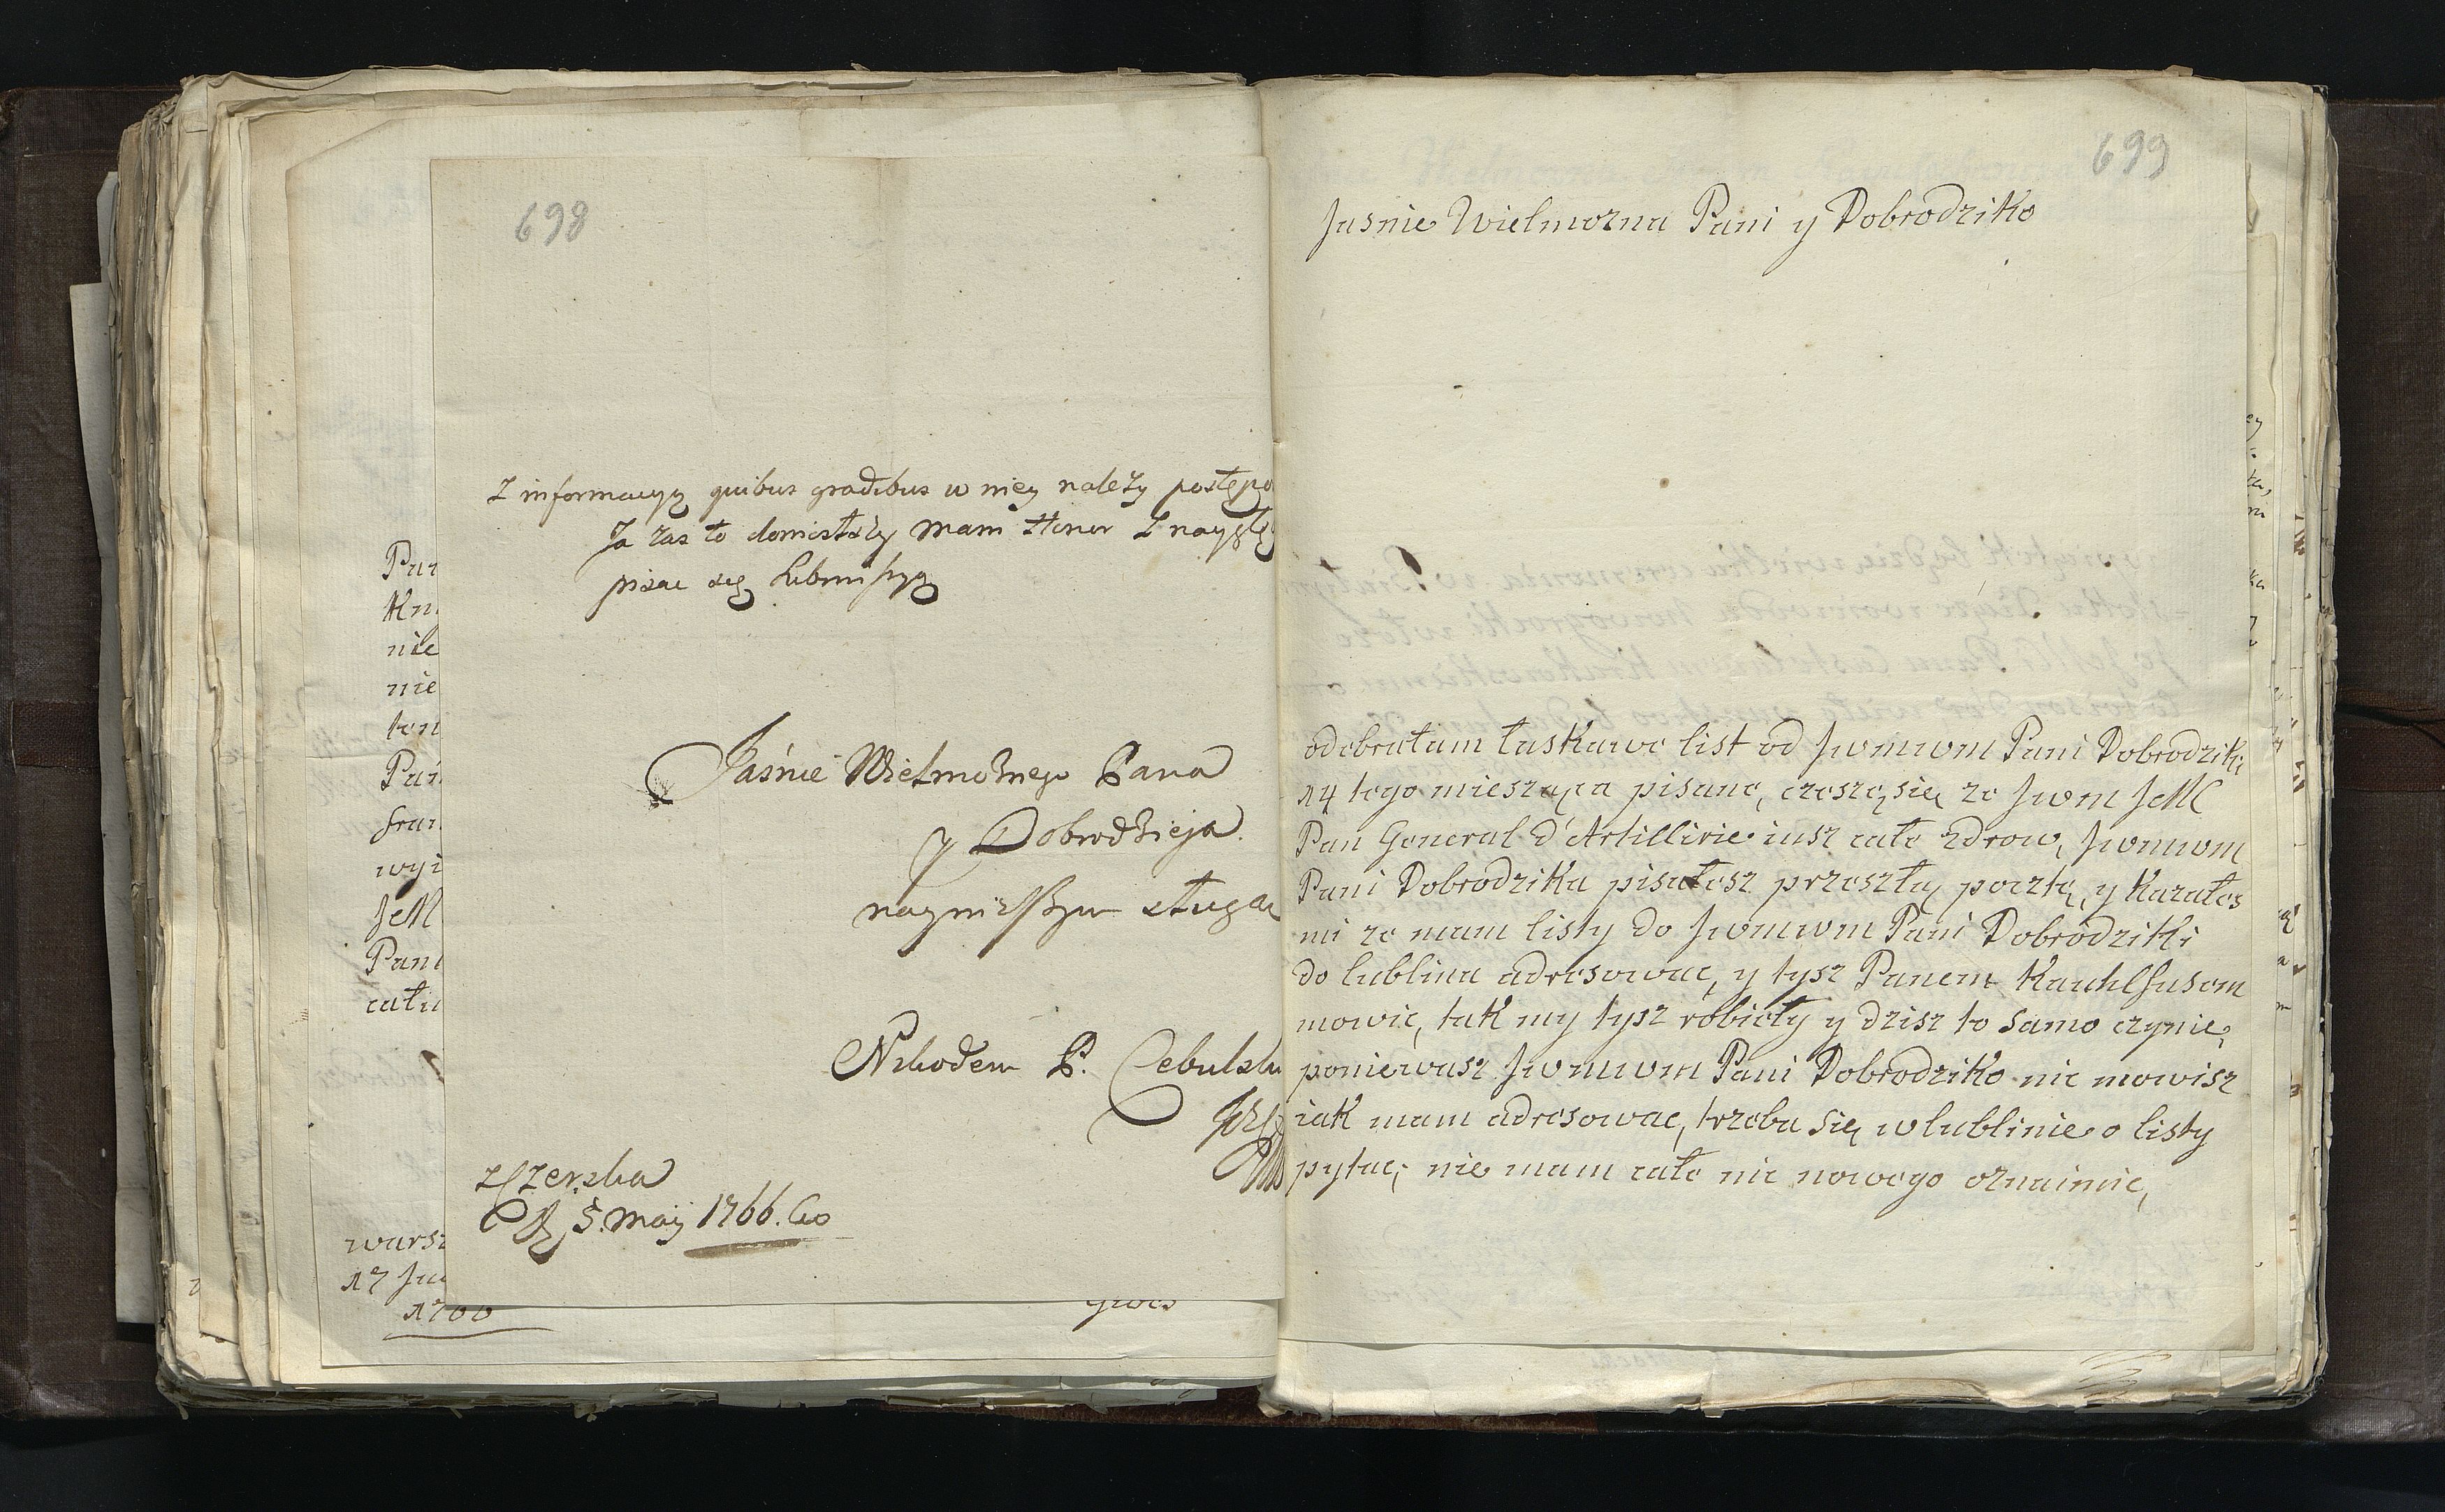 698
Z informacyą quibus gradibus w niey należy postępo
Ja zas to doniosłszy mam Honor Z nayg
pisac się
Jaśnie Wielmożnego Pana
y Dobrodzieja
naynizszym sługą
Nikodem P. Cebulski
z Czerska
D. 5. Maij 1766.
Pur
Kn
nie
nie
ten
Pan
fran
wyi
JeM
Pani
cału
warsz
17 Ju
1766
699
Jasnie Wielmozna Pani y Dobrodziko
odebrałam łaskawe list od Jwmwm Pani Dobrodziki
14 tego miesząca pisane, czeszę się ze Jwm JeM
Pan General d'Artillirie iusz cale zdrow, Jwmwm
Pani Dobrodzika pisałosz przeszłą pocztę, y Kazałos
mi ze mam listy do Jwmwm Pani Dobrodziki
do lublina adresowac, y tysz Panem Kauhlfusom
mowic, tak my tysz robieły y dzisz to samo czynie,
poniewasz Jwmwm Pani Dobrodziko nic mowisz
iak mam adresowac, trzeba się w lublinie o listy
pytac; nie mam cale nic nowego oznaimic,